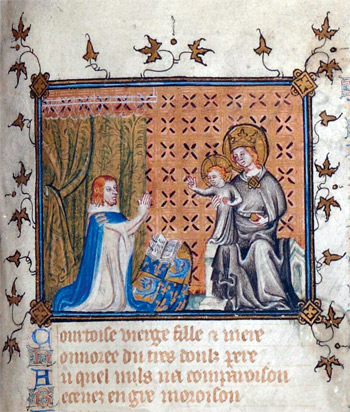 Courtoise vierge fille & mere
Honnoree du tres doulz pere
A quel nuls na comparoison
Recevez en gre moroison